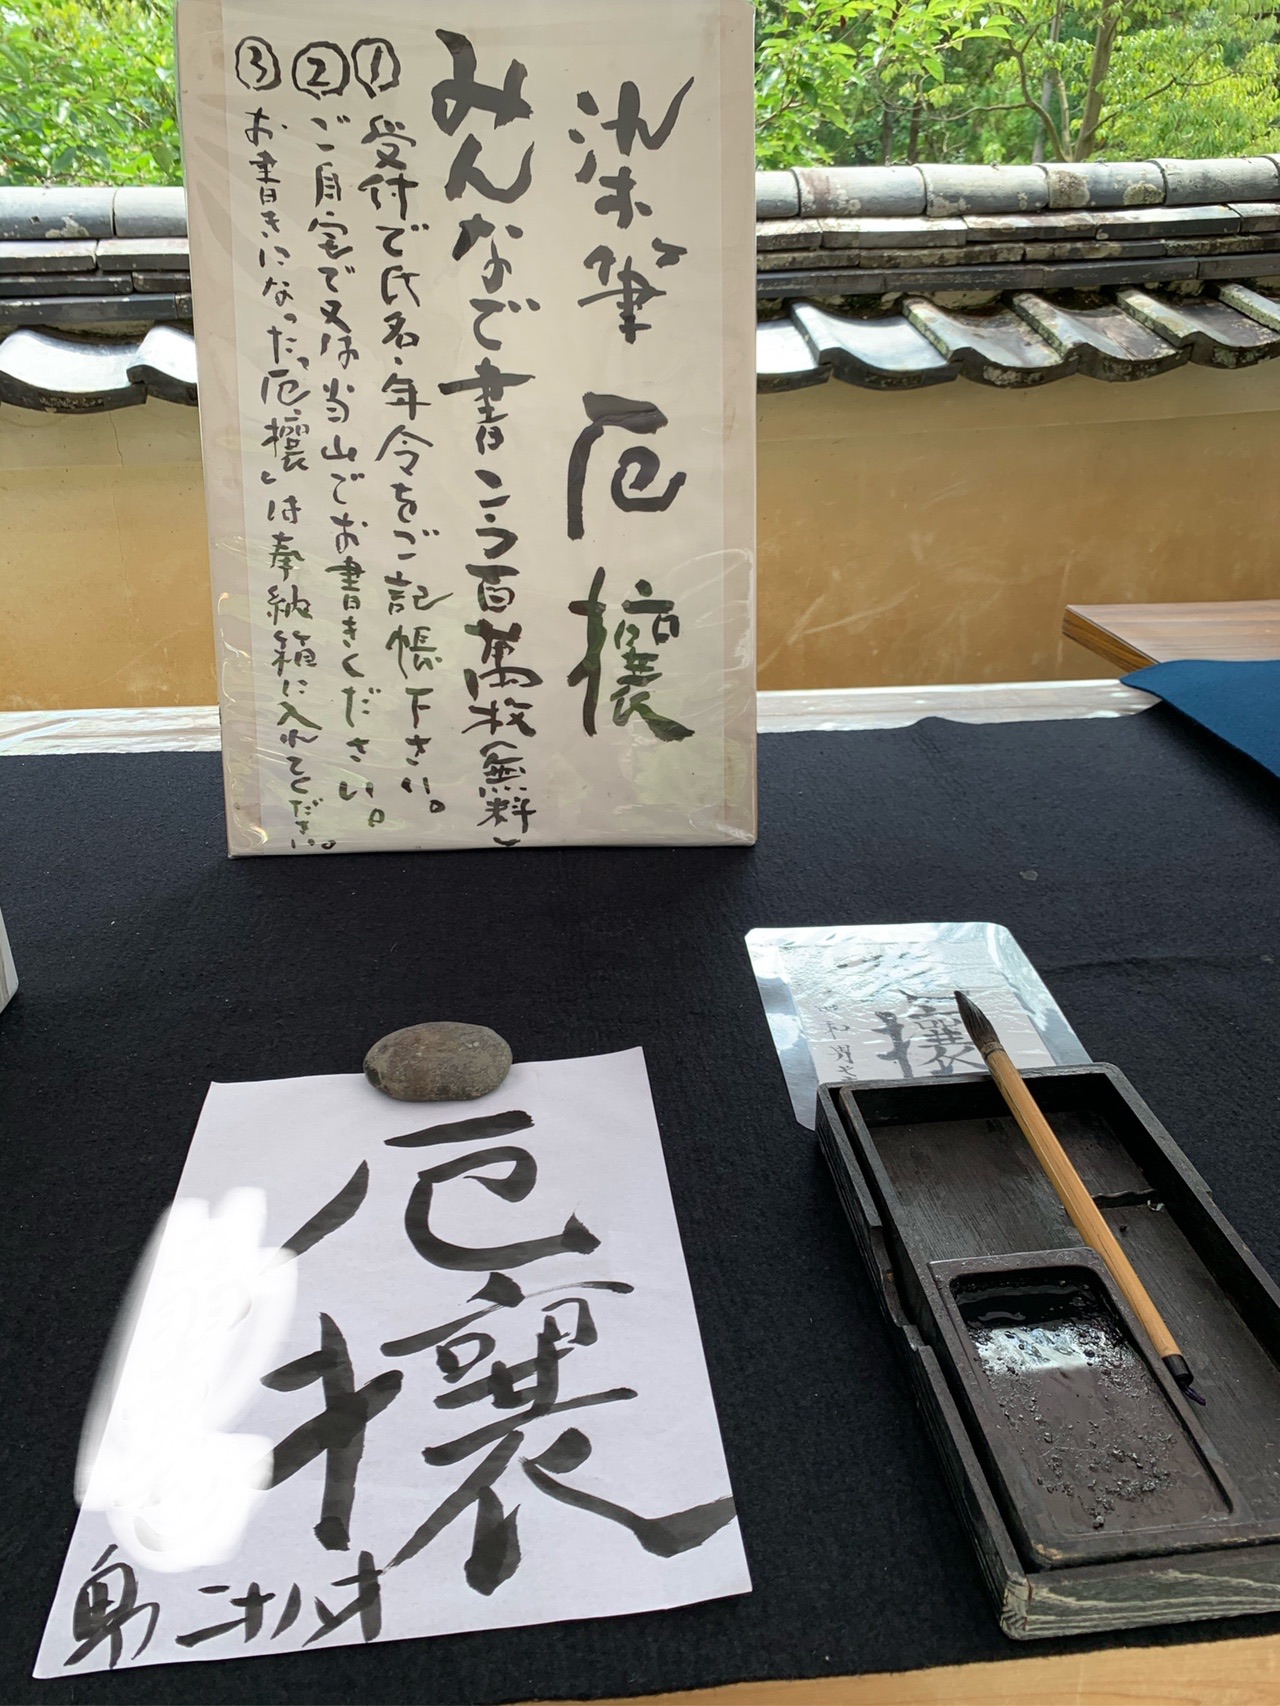 染筆 厄攘
みんなで書こう百萬枚(無料)
①受付で氏名・年令をご記帳下さい。
②ご自宅で又は当山でお書きください。
③お書きになった「厄攘」は奉納箱に入れてください。
攘
厄攘
二十八才